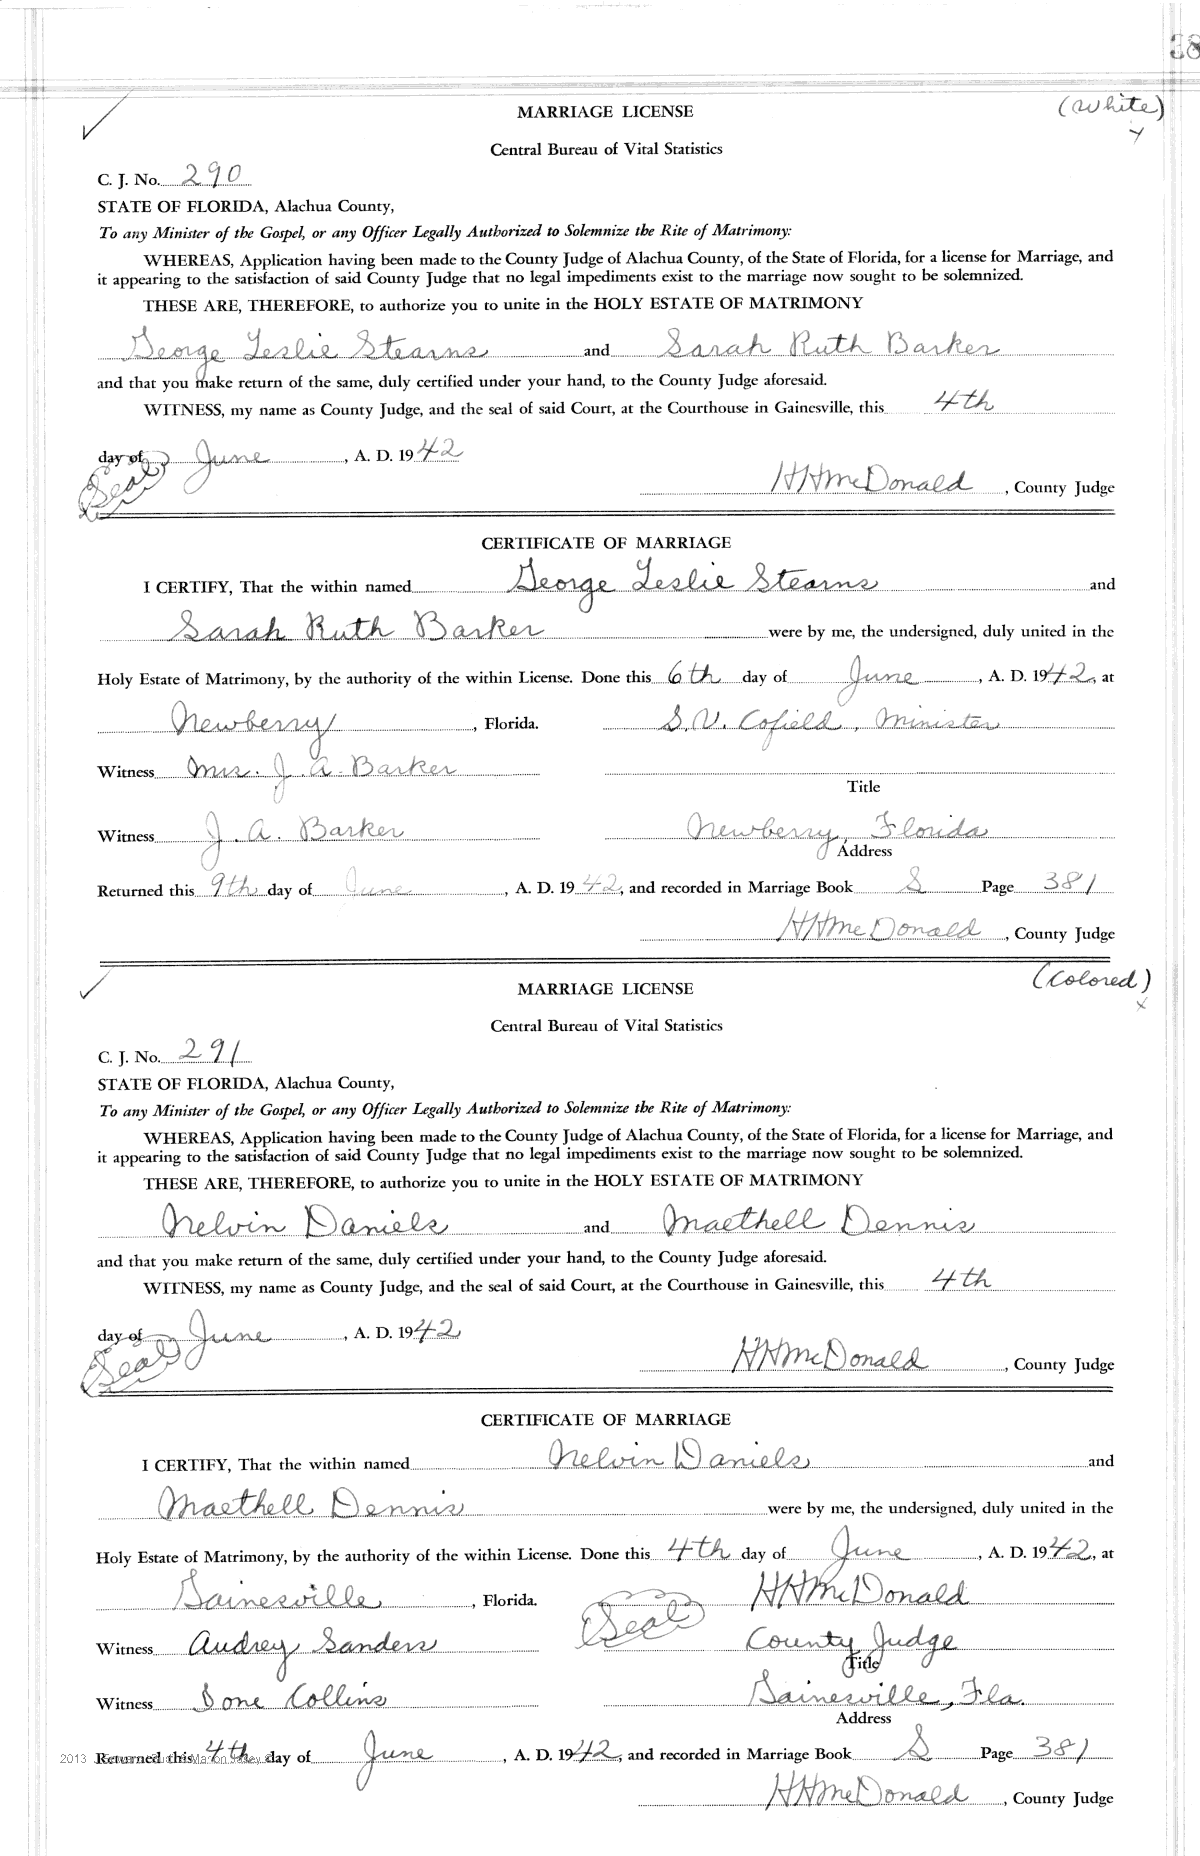 38
(White)
MARRIAGE LICENSE
Central Bureau of Vital Statistics
C. J. No. 290
STATE OF FLORIDA, Alachua County,
To any Minister of the Gospel, or any Officer Legally Authorized to Solemnize the Rite of Matrimony:
WHEREAS, Application having been made to the County Judge of Alachua County, of the State of Florida, for a license for Marriage, and
it appearing to the satisfaction of said County Judge that no legal impediments exist to the marriage now sought to be solemnized.
THESE ARE, THEREFORE, to authorize you to unite in the HOLY ESTATE OF MATRIMONY
George Leslie Stearns and Sarah Ruth Barker
and that you make return of the same, duly certified under your hand, to the County Judge aforesaid.
WITNESS, my name as County Judge, and the seal of said Court, at the Courthouse in Gainesville, this 4th
day of June, A. D. 1942
(Seal)
HHMcDonald, County Judge
CERTIFICATE OF MARRIAGE
I CERTIFY, That the within named George Leslie Stearns and
Sarah Ruth Barker were by me, the undersigned, duly united in the
Holy Estate of Matrimony, by the authority of the within License. Done this 6th day of June, A. D. 1942, at
Newberry, Florida. S. V. Cofield, Minister
Witness Mrs. J. A. Barker
Title
Witness J. A. Barker Newberry, Florida
Address
Returned this 9th day of June, A. D. 1942, and recorded in Marriage Book S Page 381
HHMcDonald, County Judge
(Colored)
MARRIAGE LICENSE
Central Bureau of Vital Statistics
C. J. No. 291
STATE OF FLORIDA, Alachua County,
To any Minister of the Gospel, or any Officer Legally Authorized to Solemnize the Rite of Matrimony:
WHEREAS, Application having been made to the County Judge of Alachua County, of the State of Florida, for a license for Marriage, and
it appearing to the satisfaction of said County Judge that no legal impediments exist to the marriage now sought to be solemnized.
THESE ARE, THEREFORE, to authorize you to unite in the HOLY ESTATE OF MATRIMONY
Nelvin Daniels and Maethell Dennis
and that you make return of the same, duly certified under your hand, to the County Judge aforesaid.
WITNESS, my name as County Judge, and the seal of said Court, at the Courthouse in Gainesville, this 4th
day of June, A. D. 1942
(Seal)
HHMcDonald, County Judge
CERTIFICATE OF MARRIAGE
I CERTIFY, That the within named Nelvin Daniels and
Maethell Dennis were by me, the undersigned, duly united in the
Holy Estate of Matrimony, by the authority of the within License. Done this 4th day of June, A. D. 1942, at
Gainesville, Florida. (Seal) HHMcDonald
Witness Audrey Sanders County Judge
Title
Witness Done Collins Gainesville, Fla.
Address
2013
Returned this 4th day of June, A. D. 1942, and recorded in Marriage Book S Page 381
HHMcDonald, County Judge